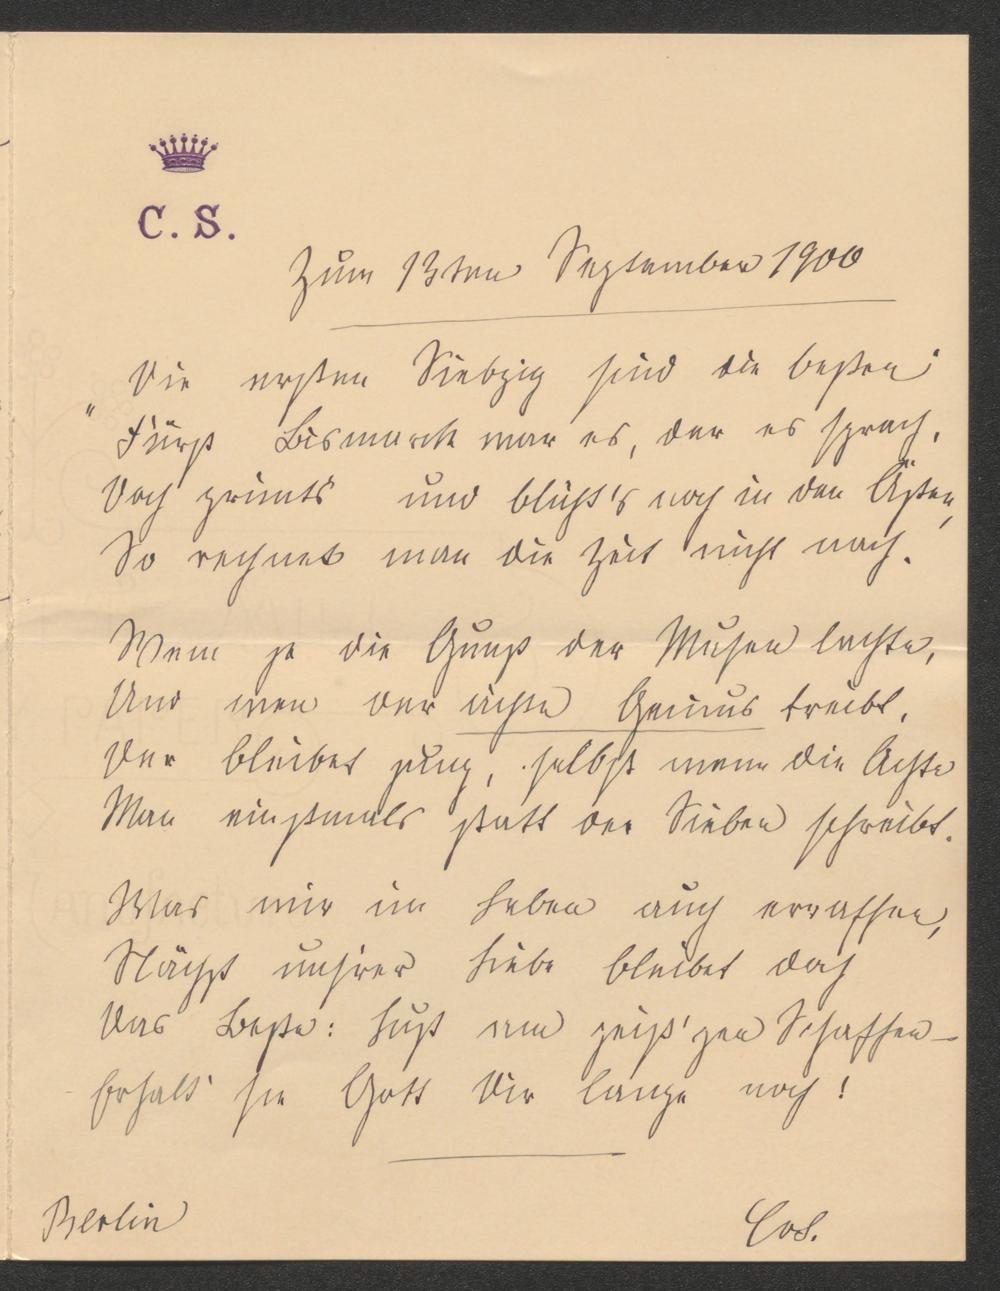 C. S.
Zum 13ten September 1900
Die ersten Siebzig sind die besten"
"Fürst Bismarck war es, der es sprach.
Doch grünts und blüht's noch in den Ästen,
So rechnet man die Zeit nicht nach.
Wem je die Gunst der Musen lachte,
Und wen der ächte Genius treibt,
Der bleibet jung, selbst wenn die Achte
Man einstmals statt der Sieben schreibt.
Was wir im Leben auch erraffen,
Nächst unsrer Liebe bleibet doch
Das Beste: Lust am geist'gen Schaffen –
Erhalt' sie Gott Dir lange noch!
Berlin